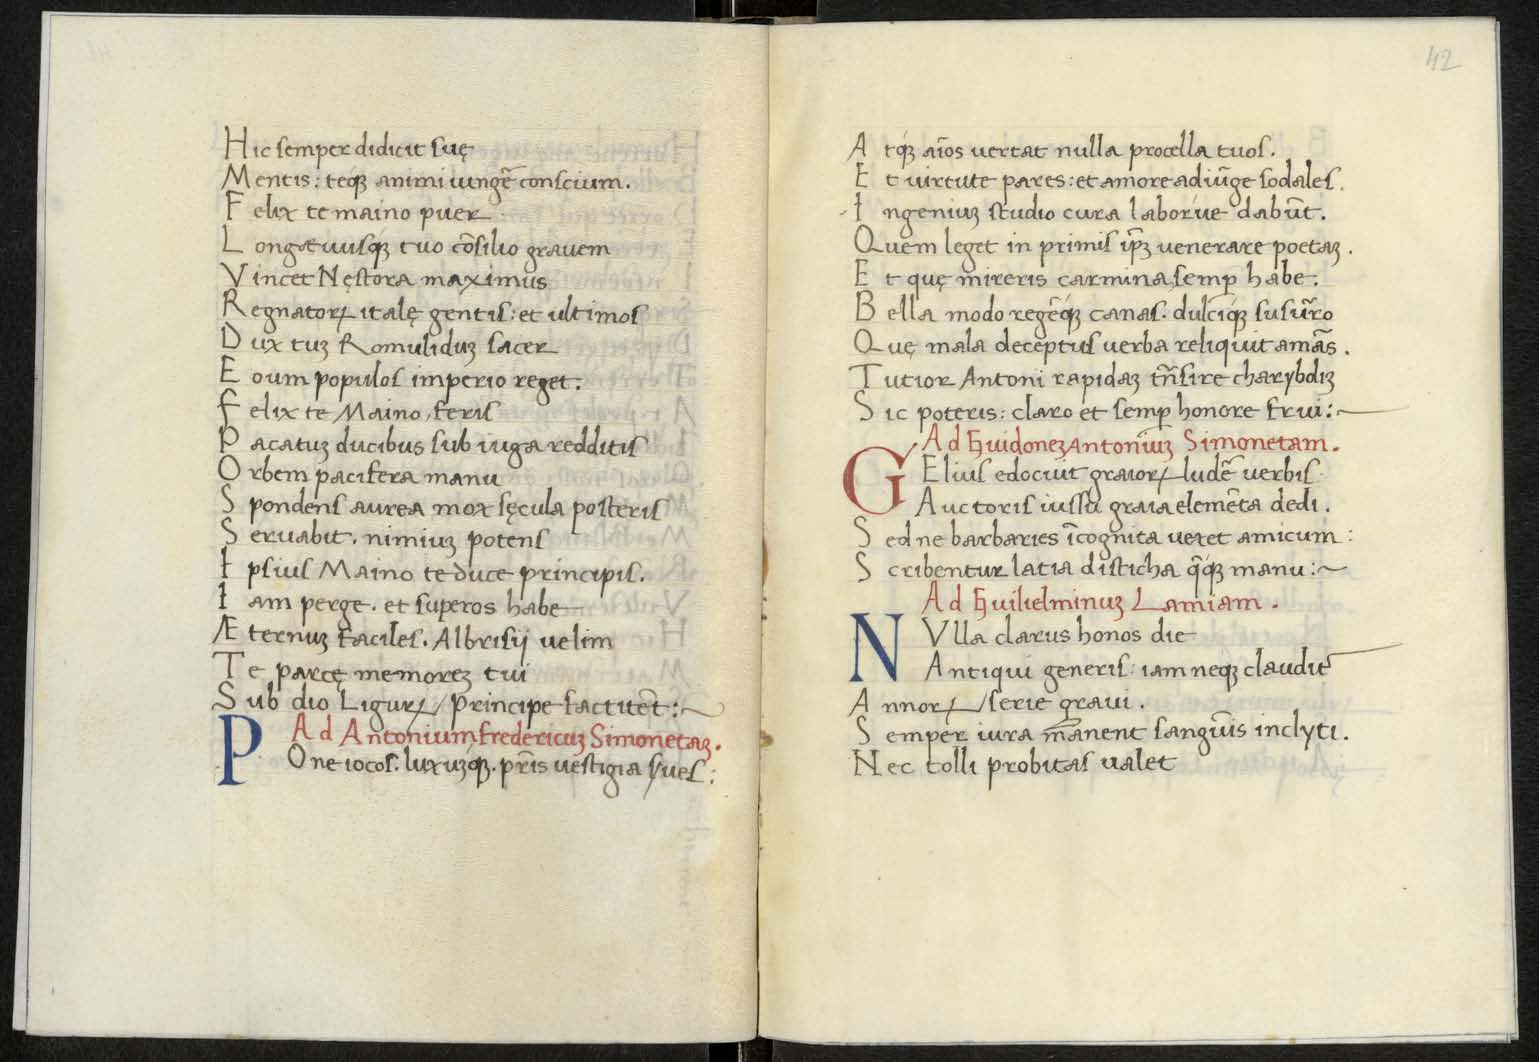 Hic semper didicit suę
Mentis: teqꝫ animi iungē conscium.
Felix te maino puer
Longæuusqꝫ tuo cōsilio grauem
Vincet Nęstora maximus
Regnatorꝝ italę gentis: et ultimos
Dux tuꝫ Romuliduꝫ sacer
Eoum populos imperio reget:
Felix te Maino, feris
Pacatuꝫ ducibus sub iuga redditis
Orbem pacifera manu
Spondens aurea mox sęcula posteris
Seruabit. nimiuꝫ potens
Ipsius Maino te duce principis.
Iam perge. et superos habe
Æternuꝫ faciles. Albrisij uelim
Te parcę memoreꝫ tui
Sub dio Ligurꝝ / principe factitēt:~
Ad Antonium fredericuꝫ Simonetaꝫ.
POne iocos. luxuꝫqꝫ. pr̄is uestigia s/ues:
42
Atqꝫ aīos uertat nulla procella tuos.
Et uirtute pares: et amore adiūge sodales.
Ingeniuꝫ studio cura laborue dabūt.
Quem leget in primis ip̄ꝫ uenerare poetaꝫ.
Et quę mireris carmina, semp̄ habe.
Bella modo regēqꝫ canas. dulciqꝫ susūro
Quę mala deceptus uerba reliquit amās.
Tutior Antoni rapidaꝫ trāsire charybdiꝫ
Sic poteris: claro et semp̄ honore frui:~
Ad Guidoneꝫ Antoniuꝫ Simonetam.
GElius edocuit graiorꝝ ludē uerbis
Auctoris iussu graia elemēta dedi.
Sed ne barbaries īcognita uetet amicum:
Scribentur latia disticha q̄qꝫ manu:~
Ad Guilielminuꝫ Lamiam.
NVlla clarus honos die
Antiqui generis: iam neqꝫ claudit᷑
Annorꝝ / serie graui.
Semper iura mānent sanguīs inclyti.
Nec tolli probitas ualet